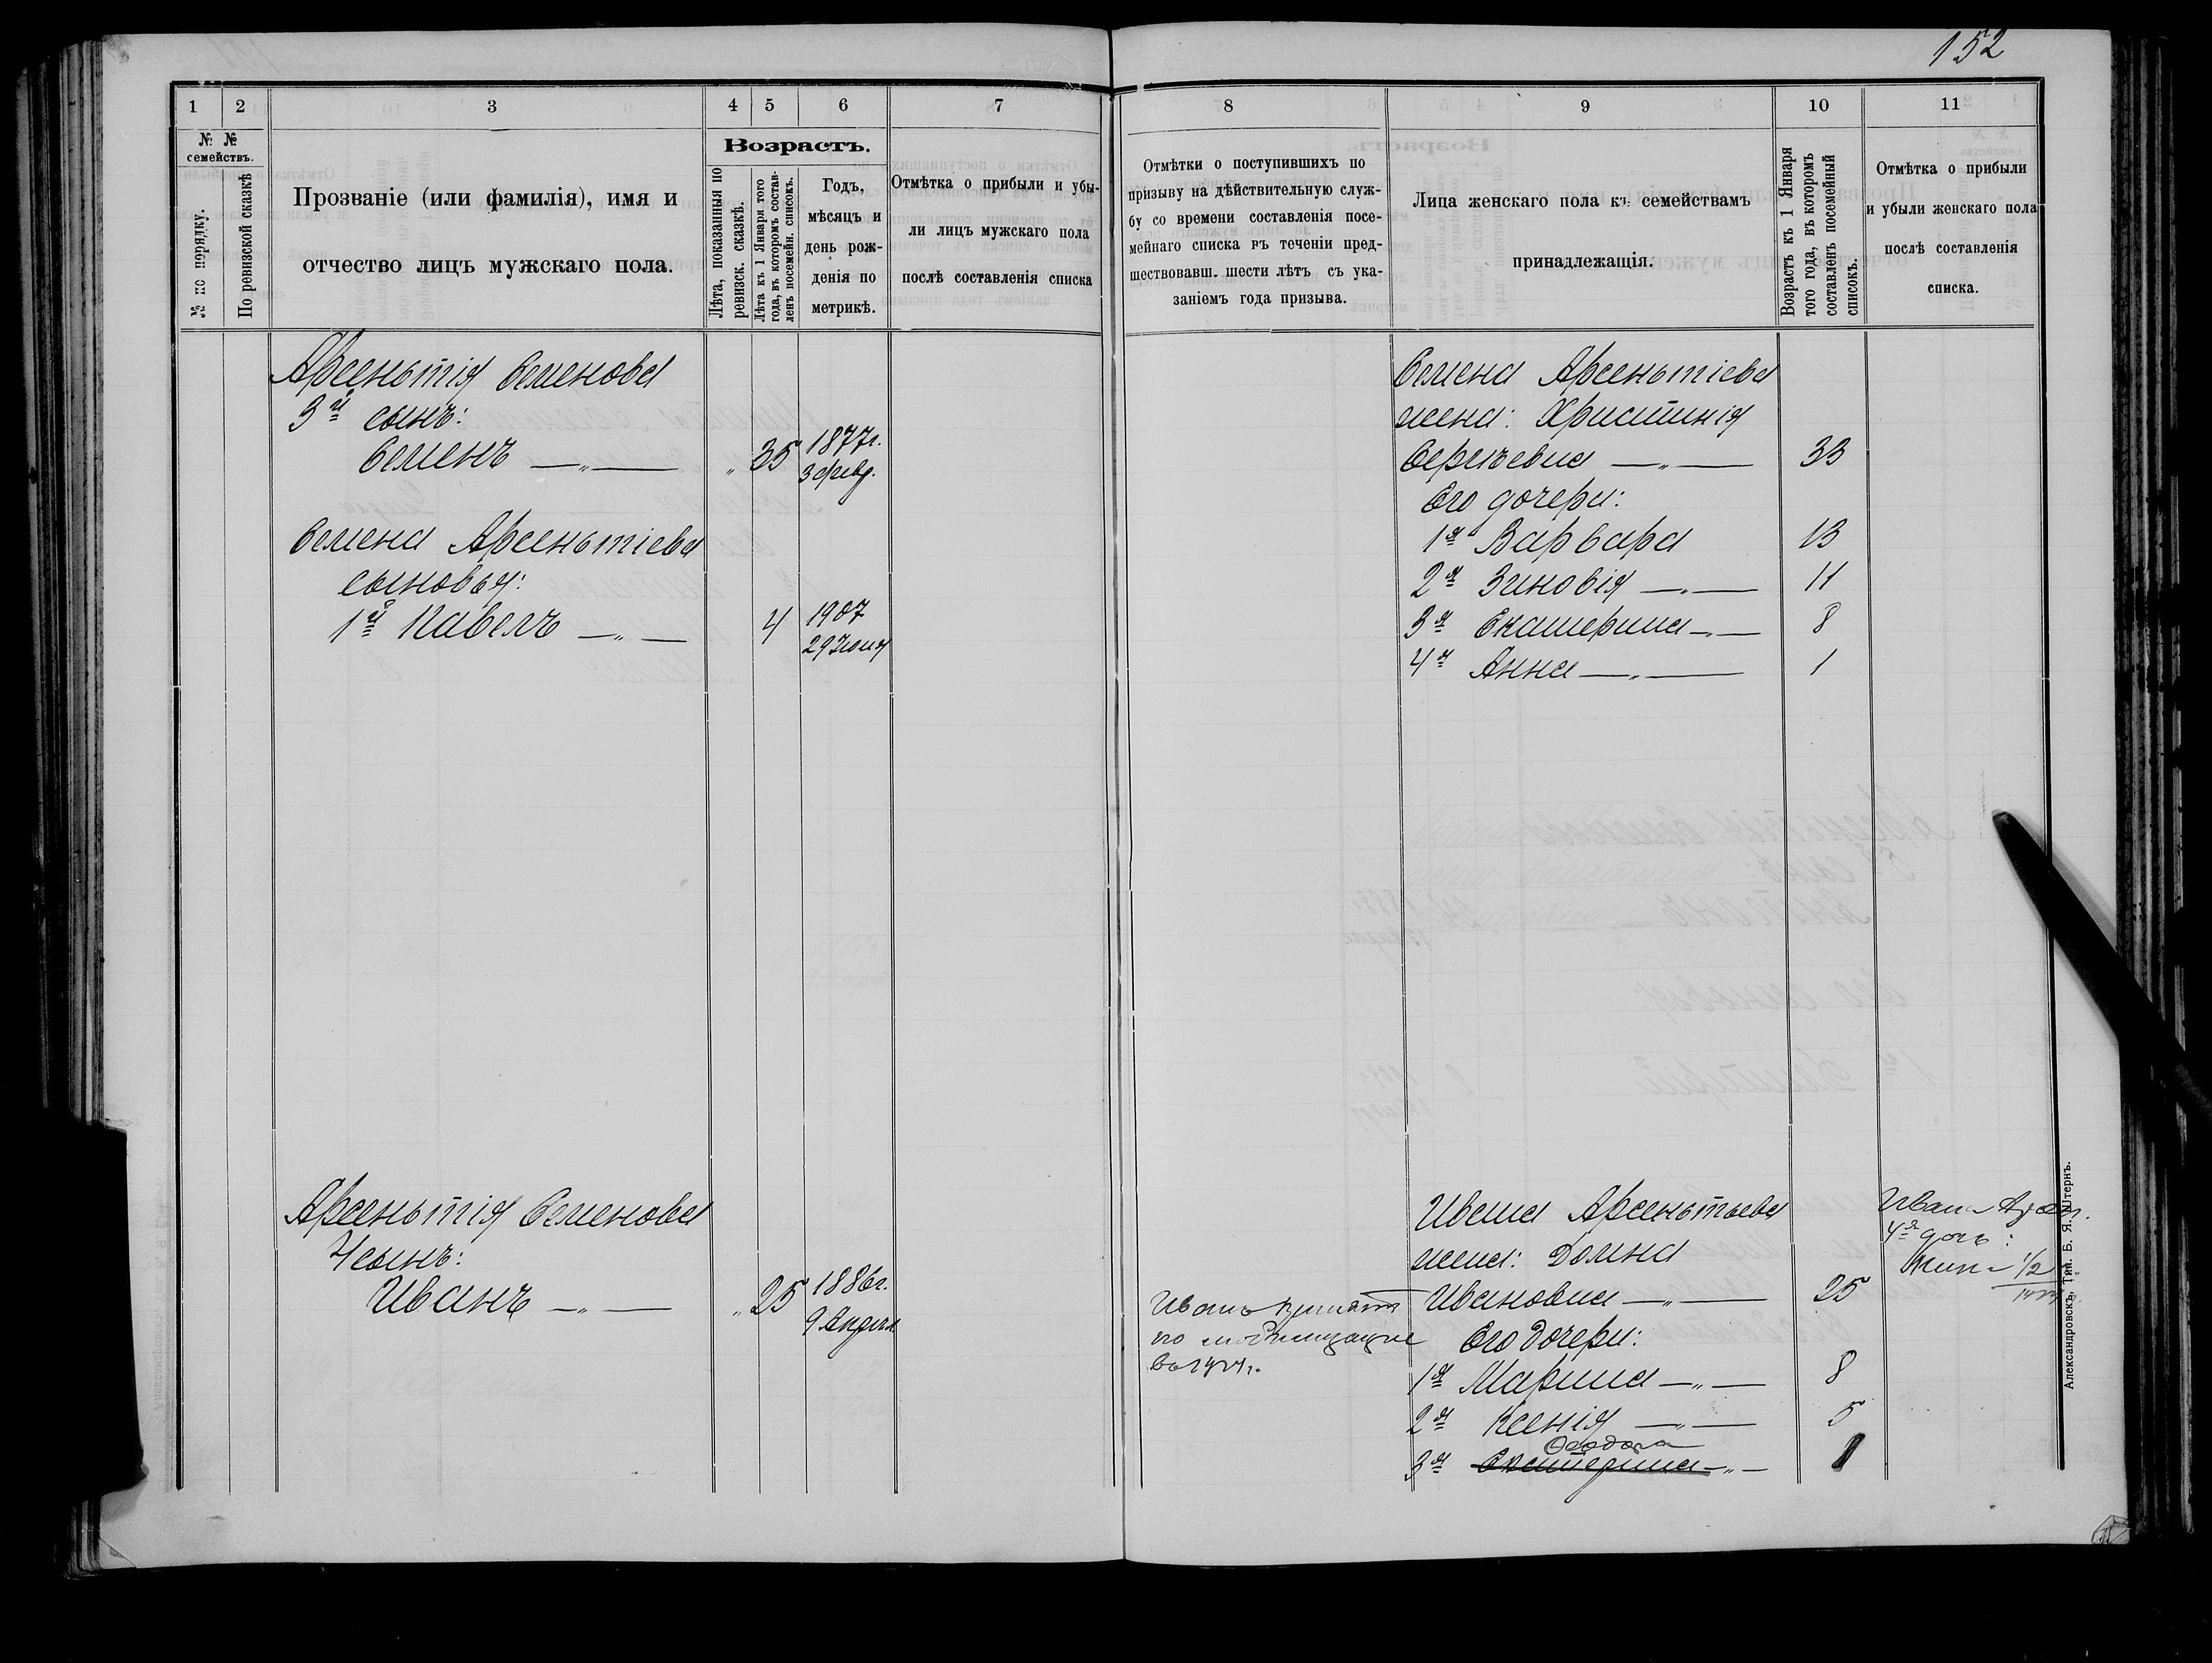 152
1 2 3 4 5 6 7
№ №
семействъ.
№ по порядку.
По ревизской сказкѣ
Прозваніе (или фамилія), имя и
отчество лицъ мужскаго пола.
Возрастъ.
Лѣта, показанныя по
ревизск. сказкѣ.
Лѣта къ 1 Января того
года, въ которомъ состав-
ленъ посемейн. списокъ.
Годъ,
мѣсяцъ и
день рож-
денія по
метрикѣ.
Отмѣтка о прибыли и убы-
ли лицъ мужскаго пола
послѣ составленія списка
Арсеньтія Семенова
3й сынъ:
Семенъ —„— „ 35 1877г.
3 февр.
Семена Арсеньтіева
сыновья:
1й Павелъ —„— 4 1907
29 Іюня
Арсеньтія Семенова
4 сынъ:
Иванъ —„— „ 25 1886г.
9 Апрѣл
8 9 10 11
Отмѣтки о поступившихъ по
призыву на дѣйствительную служ-
бу со времени составленія посе-
мейнаго списка въ теченіи пред-
шествовавш. шести лѣтъ съ ука-
заніемъ года призыва.
Лица женскаго пола къ семействамъ
принадлежащія.
Возрастъ къ 1 Января
того года, въ которомъ
составленъ посемейный
списокъ.
Отмѣтка о прибыли
и убыли женскаго пола
послѣ составленія
списка.
Семена Арсеньтіева
жена: Христинія
Сергѣевна —„— 33
Его дочери:
1я Варвара 13
2я Зиновія —„— 11
3я Екатерина —„— 8
4я Анна —„— 1
Ивана Арсеньтьева
жена: Домна
Ивановна —„— 25
Его дочери:
1я Марина —„— 8
2я Ксенія —„— 5
Ѳеодора
3я Екатерина —„— 1
Иванъ принятъ
по мобилизаціи
въ 1914г.
Ивана Арсен.
4я дочь:
1/2
Александровскъ, Тип. Б. Я. Штернъ.